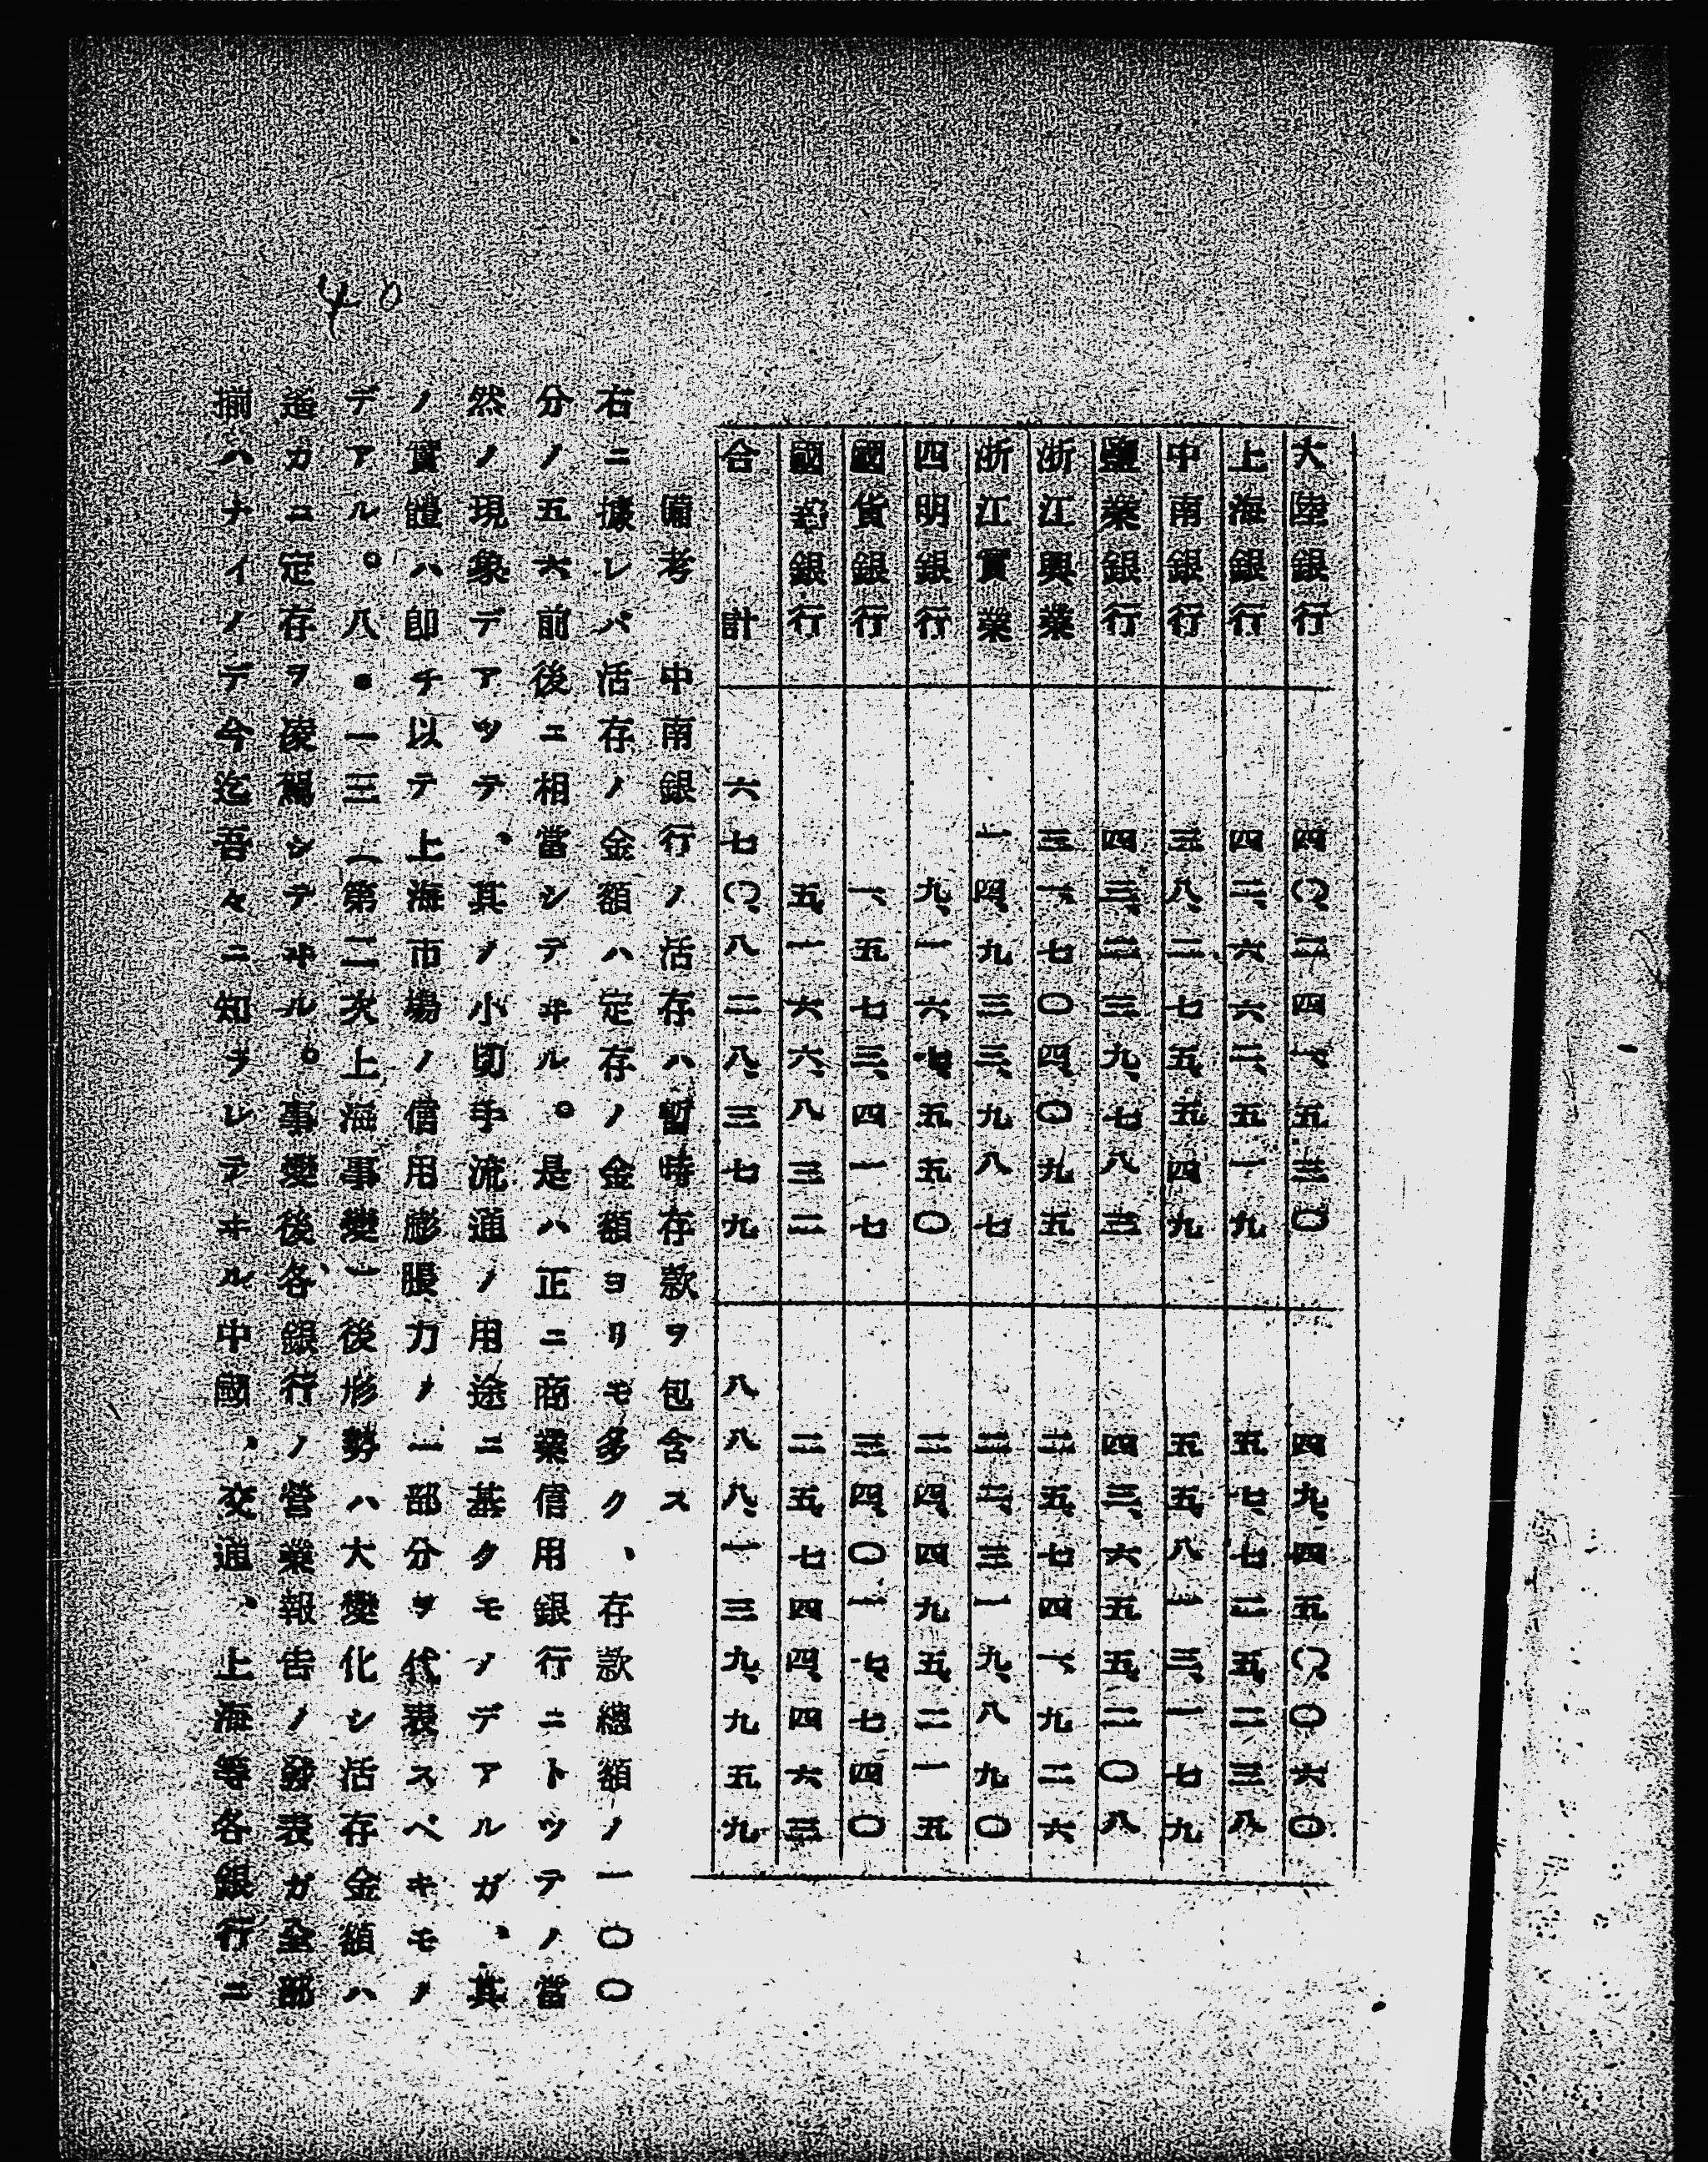 大陸銀行 四〇、二四一、五三〇 四九、四五〇、〇六〇
上海銀行 四二、六六二、五一九 五七、七二五、二三八
中南銀行 三八、二七五、五四九 五五、八一三、一七九
鹽業銀行 四三、二三九、七八三 四三、六五五、二〇八
浙江興業 三一、七〇四、〇九五 二五、七四一、九二六
浙江實業 一四、九三三、九八七 二三、三一九、八九〇
四明銀行 九、一六七、五五〇 二四、四九五、二一五
國貨銀行 一、五七三、四一七 三四、〇一七、七四〇
國 銀行 五、一六六、八三二 二五、七四四、四六三
合計 六七〇、八二八、三七九 八八八、一三九、九五九
備考 中南銀行ノ活存ハ暫時存款ヲ包含ス
右ニ據レバ活存ノ金額ハ定存ノ金額ヨリモ多ク、存款總額ノ一〇〇
分ノ五六前後ニ相當シテヰル。是ハ正ニ商業信用銀行ニトツテノ當
然ノ現象デアツテ、其ノ小切手流通ノ用途ニ基クモノデアルガ、其
ノ實體ハ即チ以テ上海市場ノ信用膨脹力ノ一部分ヲ代表スベキモノ
デアル。八・一三（第二次上海事變）後形勢ハ大變化シ活存金額ハ
遙カニ定存ヲ凌駕シテヰル。事變後各銀行ノ營業報告ノ發表ガ全部
揃ハナイノデ今迄吾々ニ知ラレテヰル中國、交通、上海等各銀行ニ
40